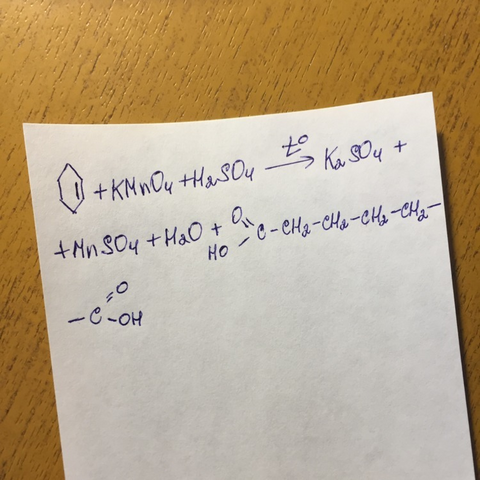 + KMnO4 + H2SO4 t° → K2SO4 +
+ MnSO4 + H2O + O=C(HO)-CH2-CH2-CH2-CH2-
-C(=O)-OH